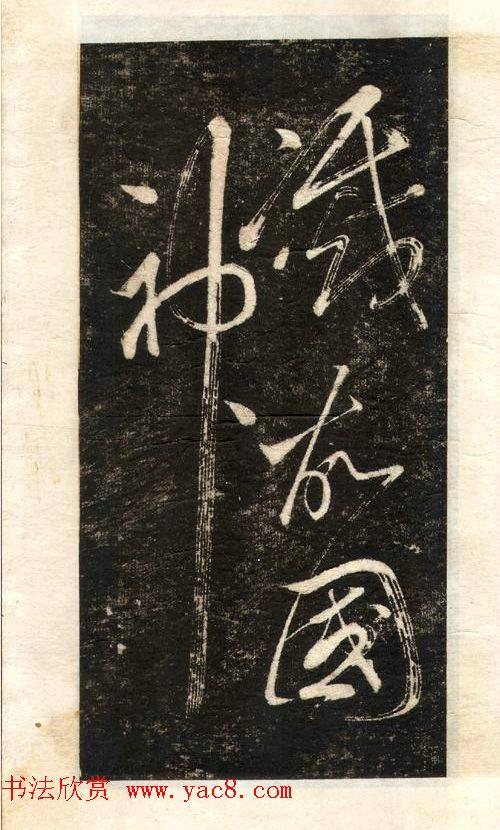 滅故國
神
书法欣赏 www.yac8.com